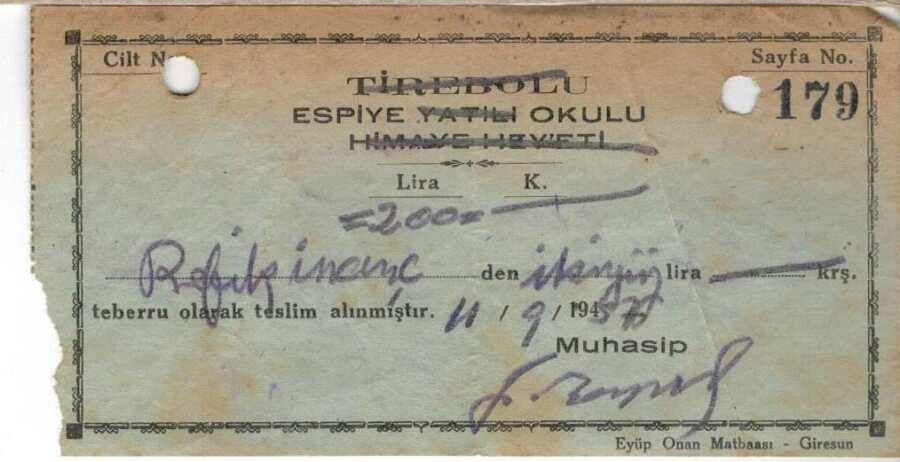 Cilt N
Sayfa No.
179
TİREBOLU
ESPİYE YATILI OKULU
HİMAYE HEY'ETİ
Lira K.
=200=
Refik inanç den ikiyüz lira krş.
teberru olarak teslim alınmıştır. 11 / 9 / 195
Muhasip
Eyüp Onan Matbaası - Giresun